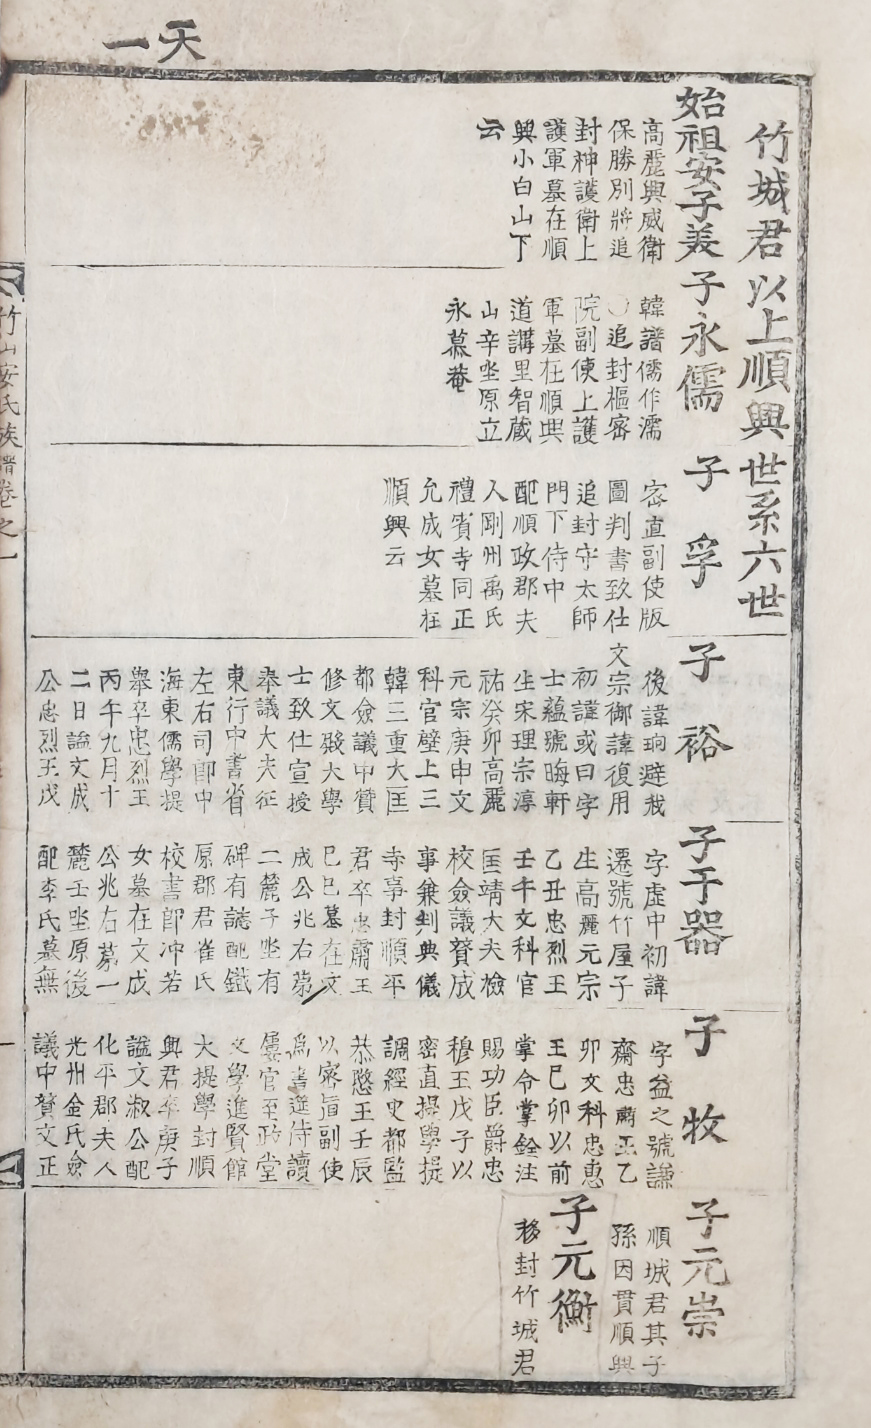 天一
竹城君以上順興世系六世
始祖安子美
高麗興威衛
保勝別將追
封神護衛上
護軍墓在順
興小白山下
云
子永儒
韓譜儒作濡
〇追封樞密
院副使上護
軍墓在順興
道講里智蔵
山辛坐原立
永慕菴
子孚
密直副使版
圖判書致仕
追封守太師
門下侍中
配順政郡夫
人剛州禹氏
禮賓寺同正
允成女墓在
順興云
子裕
後諱珦避我
文宗御諱復用
初諱或曰字
士蘊號晦軒
生宋理宗淳
祐癸卯高麗
元宗庚申文
科官壁上三
韓三重大匡
都僉議中贊
修文殿大學
士致仕宣授
奉議大夫征
東行中書省
左右司郎中
海東儒學提
舉卒忠烈王
丙午九月十
二日謚文成
公忠烈王戊
子于器
字虛中初諱
遷號竹屋子
生高麗元宗
乙丑忠烈王
壬午文科官
匡靖大夫檢
校僉議賛成
事兼判典儀
寺事封順平
君卒忠肅王
己巳墓在文
成公兆右第
二麓子坐有
碑有誌配鐵
原郡君崔氏
校書郎冲若
女墓在文成
公兆右第一
麓壬坐原後
配李氏墓無
子牧
字益之號謙
齋忠肅王乙
卯文科忠惠
王己卯以前
掌令掌銓注
賜功臣爵忠
穆王戊子以
密直提學提
調經史都監
恭愍王壬辰
以密直副使
爲書筵侍讀
屢官至政堂
文學進賢館
大提學封順
興君卒庚子
謚文淑公配
化平郡夫人
光州金氏僉
議中賛文正
子元崇
順城君其子
孫因貫順興
子元衡
移封竹城君
竹山安氏族譜卷之一
一